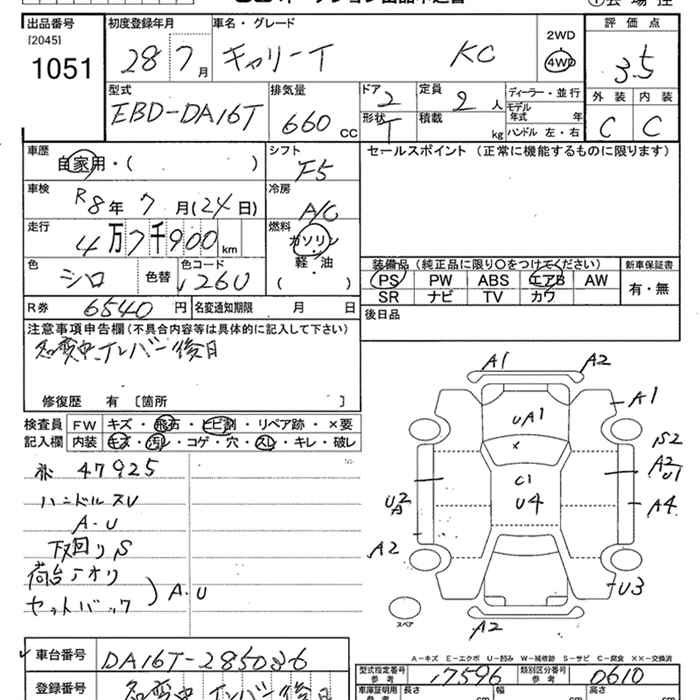 出品番号 初度登録年月 車名・グレード 評価点
[2045] 1051 28 7月 キャリーT KC 2WD 4WD 3.5
型式 排気量 ドア 定員 ディーラー・並行 外装 内装
EBD-DA16T 660cc 2 2人 モデル年式 年 C C
形状 T 積載 kg ハンドル 左・右
車歴 自家用・( ) シフト F5 セールスポイント (正常に機能するものに限ります)
車検 R8年 7月(24日) 冷房 A/C
走行 4万7千900km 燃料 ガソリン 軽・油 ( )
色 シロ 色替 色コード 26U
装備品(純正品に限り○をつけてください) 新車保証書
PS PW ABS エアB AW 有・無
SR ナビ TV カワ
R券 6540円 名変通知期限 月 日 後日品
注意事項申告欄(不具合内容等は具体的に記入して下さい)
名変中 ナンバー後日
修復歴 有 [箇所 ]
検査員 FW キズ・飛石・ヒビ割・リペア跡・×要
記入欄 内装 キズ・汚レ・コゲ・穴・スレ・キレ・破レ
47925
ハンドルスU
A・U
下回りS
荷台アオリ
セットバック ) A・U
A1 A2
A1
UA1
S2
×
A2
U1
C1
U4
U2
A4
A2
U3
スペア
A2
A-キズ E-エクボ U-凹み W-補修跡 S-サビ C-腐食 ××-交換済
車台番号 DA16T-285036
型式指定番号 参考 17596 類別区分番号 参考 0610
登録番号 名変中 ナンバー後日
車庫証明用 参考 長さ cm 幅 cm cm